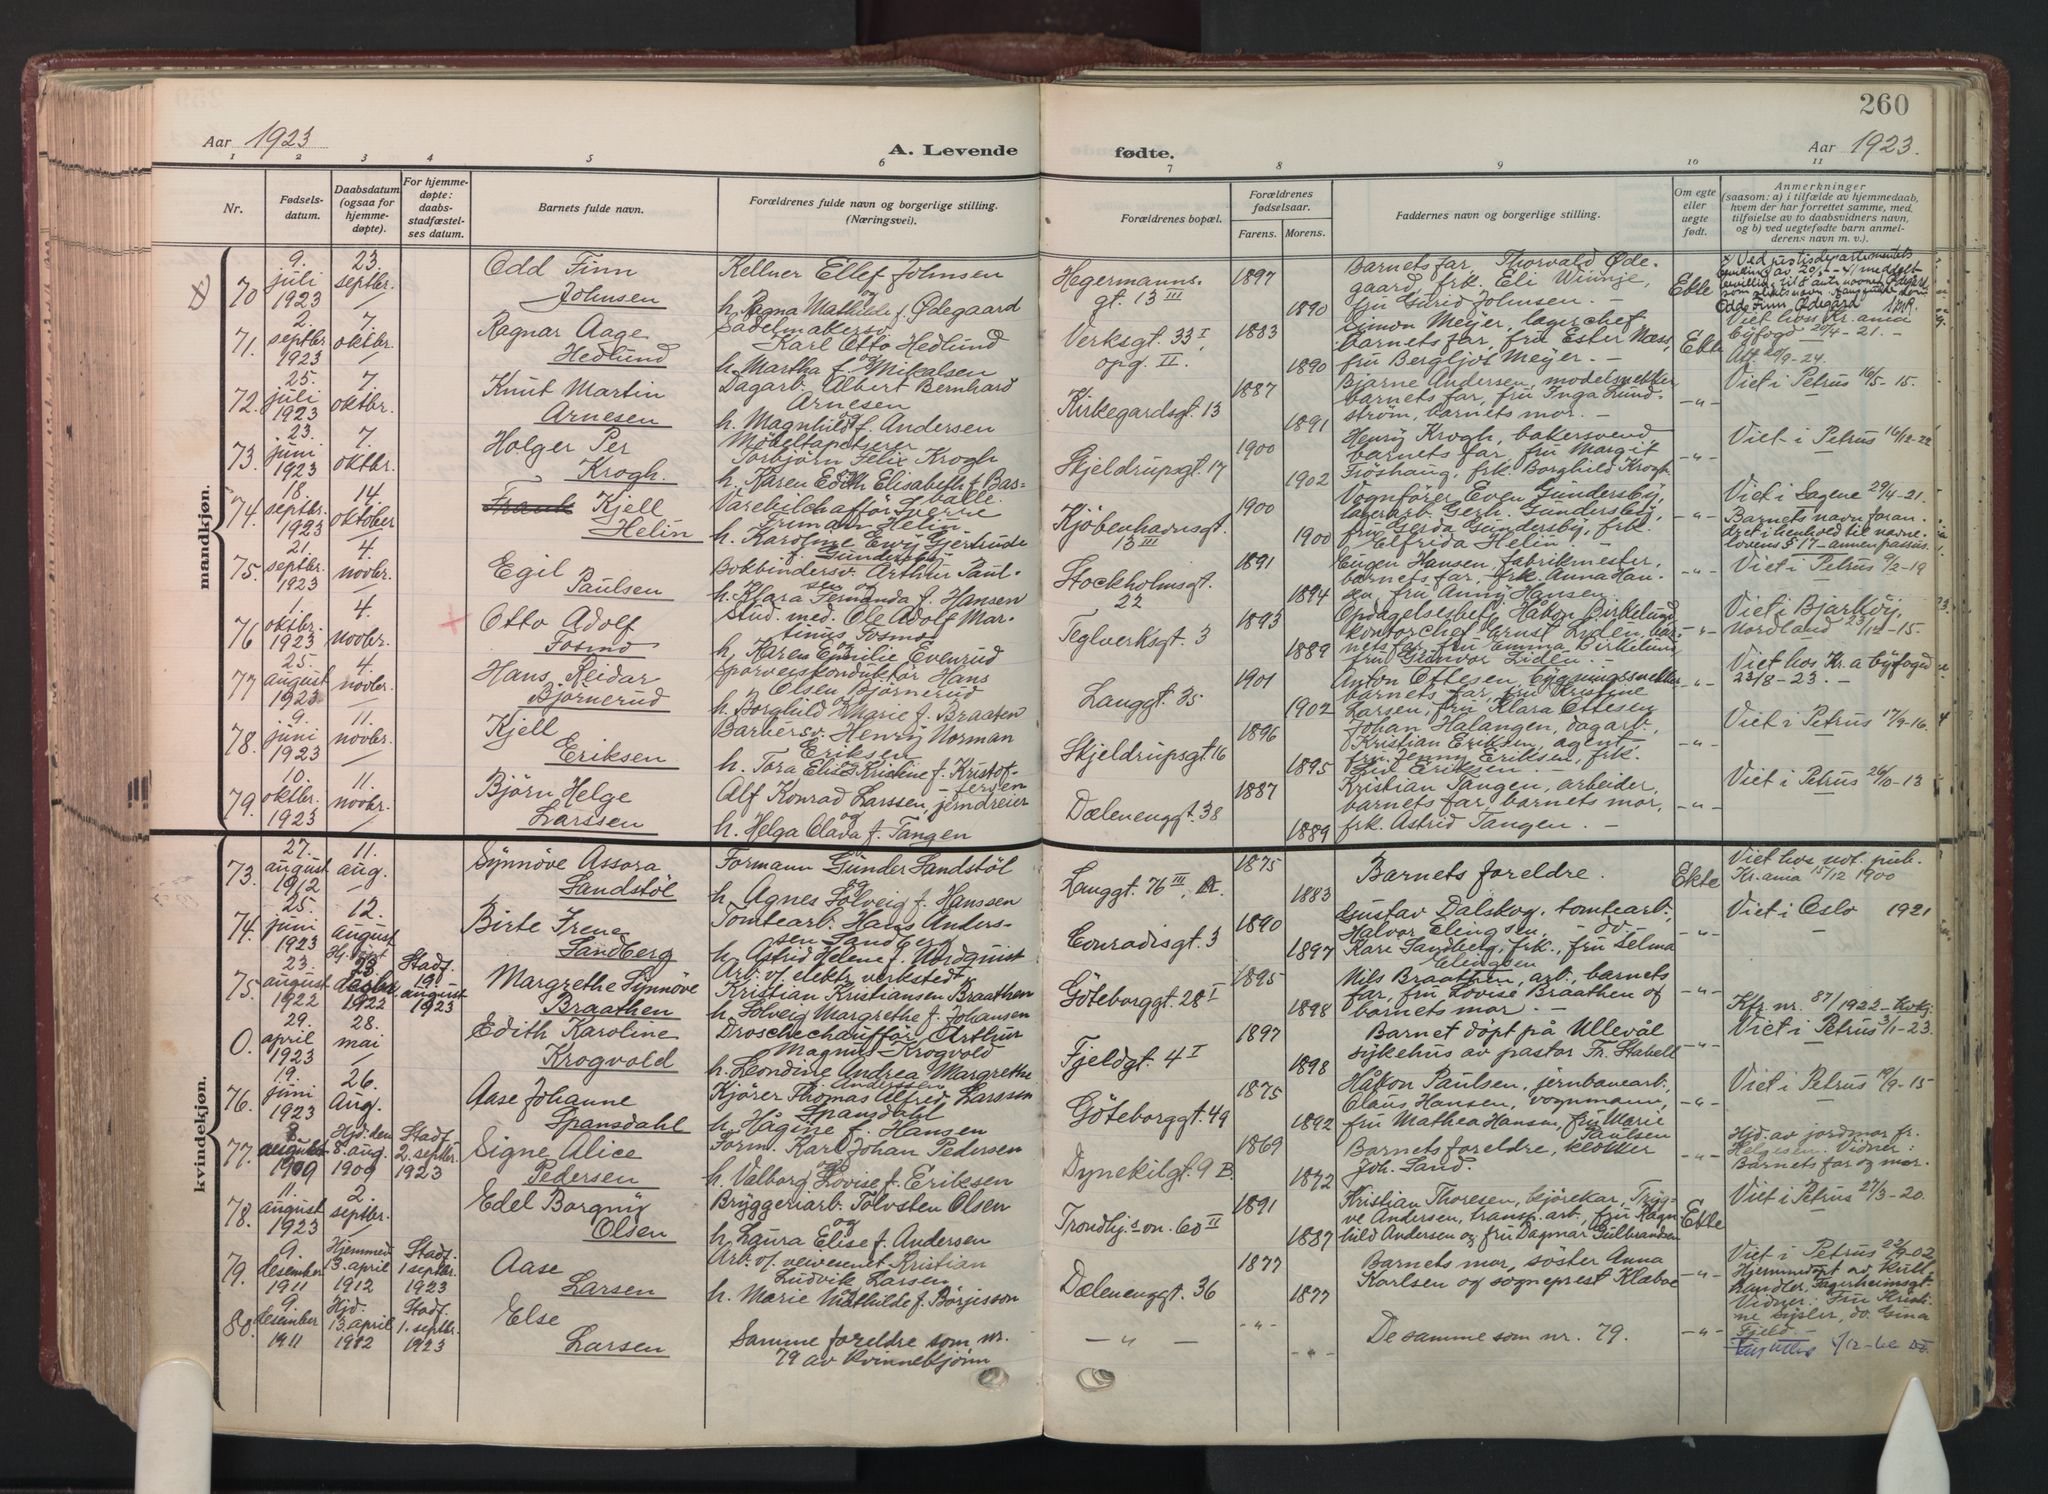 260
Aar 1923
A. Levende
fødte.
Aar 1923.
1 2 3 4 5 6 7 8 9 10 11
Nr.
Fødsels-
datum.
Daabsdatum
(ogsaa for
hjemme-
døpte).
For hjemme-
døpte:
daabs-
stadfæstel-
ses datum.
Barnets fulde navn.
Forældrenes fulde navn og borgerlige stilling.
(Næringsvei).
Forældrenes bopæl.
Forældrenes
fødselsaar.
Farens. Morens.
Faddernes navn og borgerlige stilling.
Om egte
eller
uegte
født.
Anmerkninger
(saasom: a) i tilfælde av hjemmedaab,
hvem der har forrettet samme, med
tilføielse av to daabsvidners navn,
og b) ved uegtefødte barn anmel-
derens navn m. v.).
mandkjøn.
70
9.
juli
1923
23.
septbr.
Odd Finn
Johnsen
Kellner Ellef Johnsen
og
h. Ragna Mathilde f. Ødegaard
Hegermanns-
gt. 13 III
1897
1890
Barnets far, Thorvald Øde-
gaard, frk. Eli Winnje,
fru Gurid Johnsen. -
Ekte
Odd Finn Ødegård
71.
2.
septbr
1923
7
oktbr.
Ragnar Aage
Hedlund
Sadelmakersv.
Karl Otto Hedlund
og
h. Martha f. Mikalsen
Verksgt. 33 I
opg. II.
1883
1890
Simon Meyer, lagerchef
barnets far, fru Ester Næss,
fru Bergljot Meyer. -
Ekte
Viet hoss Kr.ania
Byfogd 20/4 - 21. -
72.
25.
juli
1923
7
oktbr.
Knut Martin
Arnesen
Dagarb. Albert Bernhard
Arnesen
og
h. Magnhild f. Andersen
Kirkegardsgt. 13
1887
1891
Bjarne Andersen, modelsnekker
barnets far, fru Inga Lund-
ström, barnets mor. -
-"-
Viet i Petrus 16/5-15.
73.
23.
juni
1923
7.
oktbr.
Holger Per
Krogh.
Møbeltapetserer
Torbjörn Felix Krogh
og
h. Karen Edith Elisabeth f. Bar-
balle.
Skjeldrupsgt. 17
1900
1902
Henry Krogh, bakersvend
barnets far, fru Margit
Fröshaug, frk. Borghild Krogh
-"-
Viet i Petrus 16/12-22
74.
18.
septbr.
1923
14.
oktober
Frank Kjell
Helin
Varebilchafför Sverre
Truman Helin
h. Karoline Ewy Gjertrude
f. Gundersby
Kjöbenhavnsgt.
13 III
1900
1900
Vognfører Even Gundersby,
lagerarb. Gerh. Gundersby,
fru Gerda Gundersby, frk.
Elfrida Helin. -
-"-
Viet i Sagene 29/4-21.
Barnets navn foran-
dret i henhold til navne-
lovens § 17 - annen passus.
75.
21.
septbr.
1923
4.
novbr.
Egil
Paulsen
Bokbindersv. Arthur Paul-
sen og
h. Klara Fernanda f. Hansen
Stockholmsgt.
22
1891
1894
Eugen Hansen, fabrikmester,
barnets far, frk. Anna Han-
sen, fru Anny Hansen.
-"-
Viet i Petrus 9/2-19
76
oktbr.
1923
4.
novbr.
Otto Adolf
Fosmo
Stud. med. Ole Adolf Mar-
tinus Fosmo
og
h. Karen Emilie Evenrud
Teglverksgt. 3
1893
1889
Opdagelsesbetj. Håkon Birkelund
kontorchef Ernst Lyden, bar-
nets far, fru Emma Birkelund
fru Gunvor Liden. -
-"-
Viet i Bjarköy,
Nordland 23/12-15.
77
25.
august
1923
4.
novbr.
Hans Reidar
Björnerud
Sporveiskonduktör Hans
Olsen Björnerud
og
h. Borghild Marie f. Braaten
Langgt. 35
1901
1902
Anton Ottesen, bygningssnekker
barnets far, fru Kristine
Larsen, fru Klara Ottesen
-"-
Viet hos Kr.a byfogd
23/8-23. -
78.
9.
juni
1923
11.
novbr.
Kjell
Eriksen
Barbersv. Henry Norman
Eriksen
h. Tora Elise Kristine f. Kristof-
fersen
Skjeldrupsgt 16
1896
1895
Johan Halangen, dagarb.
Kristian Eriksen, agent,
fru Jenny Eriksen, frk.
Eriksen -
-"-
Viet i Petrus 17/9-16.
79.
10.
oktbr.
1923
11.
novbr.
Björn Helge
Larssen
Alf Konrad Larssen, jerndreier
og
h. Helga Olava f. Tangen
Dælenenggt. 38
1887
1889
Kristian Tangen, arbeider,
barnets far, barnets mor,
frk. Astrid Tangen. -
-"-
Viet i Petrus 26/10-13
kvindekjøn.
73.
27.
august
1912
11.
aug.
Synnöve Assora
Sandstöl
Formann Gunder Sandstöl
og
h. Agnes Solveig f. Hanssen
Langgt. 76 III, A.
1875
1883
Barnets foreldre.
Ekte
Viet hos not. pub.
Kr.ania 15/12 1900
74.
25.
juni
1923
12.
august
Birte Irene
Sandberg
Tomtearb. Hans Anders-
sen Sandberg
h. Astrid Helene f. Nordquist
Conradisgt. 3
1890
1897
Gustav Dalskog, tomtearb.,
Halvor Elingsen, -do-
Kari Sandberg, frk., fru Selma
Elingsen
-"-
Viet i Oslo 1921
75.
23.
august
1922
23
desbr
1922
Stadf.
19.
august
1923
Margrethe Synnöve
Braathen
Arb. v. elektr. verksted
Kristian Kristiansen Braathen
h. Solveig Margrethe f. Johansen
Göteborggt. 28 I
1895
1898
Nils Braathen, arb., barnets
far, fru Lovise Braathen og
barnets mor. -
-"-
Kfr. nr. 87/1922 - kvkj.
0.
29.
april
1923
28.
mai
Edith Karoline
Krogvold
Droschechaufför Arthur
Magnus Krogvold
h. Leondine Andrea Margrethe
f. Anderssen
Fjeldgt. 4 I
1897
1898
Barnet döpt på Ullevål
sykehus av pastor Fr. Stabell
-"-
Viet i Petrus 3/1-23.
76.
19.
juni
1923
26.
Aug.
Aase Johanne
Spansdahl
Kjörer Thomas Alfred Larssen
Spansdahl
h. Hågine f. Hansen
Göteborggt. 49
1875
1892
Håkon Paulsen, jernbanearb.
Claus Hansen, vognmann,
fru Mathea Hansen, fru Marie
Paulsen
-"-
Viet i Petrus 19/9-15-
77.
8
august
1909
Hjd. den
8. aug.
1909
Stadf.
2. septbr.
1923
Signe Alice
Pedersen
Form. Karl Johan Pedersen
og
h. Valborg Lovise f. Eriksen
Dynekilgt. 9 B.
1869
1872
Barnets foreldre, klokker
Joh. Sand.
-"-
Hjd. av jordmor fr.
Helgesen. Vidner:
Barnets far og mor.
78.
11.
august
1923
2.
septbr.
Edel Borgny
Olsen
Bryggeriarb. Tolvsten Olsen
og
h. Laura Elise f. Andersen
Trondhj.s vn. 60 II
1891
1887
Kristian Thoresen, kjörekar, Tryg-
ve Andersen, transp. arb., fru Ragn-
hild Andersen og fru Dagmar Gulbrandsen
Ekte
Viet i Petrus 27/3-20.
79.
9.
desember
1911
Hjemmed
13. april
1912
Stadf.
1 septbr.
1923
Aase
Larsen
Arb. v. veivesenet Kristian
Ludvik Larsen
h. Marie Mathilde f. Börjesson
Dælenenggt. 36
1877
1877
Barnets mor, söster Anna
Karlsen og sogneprest Klaboe
-"-
Viet i Petrus 22/9-02
Hjemmedöpt av kull-
handler, Fagerheimsgt.
Vidner: Fru Kristi-
ne Sysler, do. Gina
Fjeld -
80.
9.
desember
1911
Hjd.
13. april
1912
Stadf.
1. septbr.
1923
Else
Larsen
Samme foreldre som nr.
79 av kvinnekjönn
-"-
-"-
-"-
De samme som nr. 79.
-"-